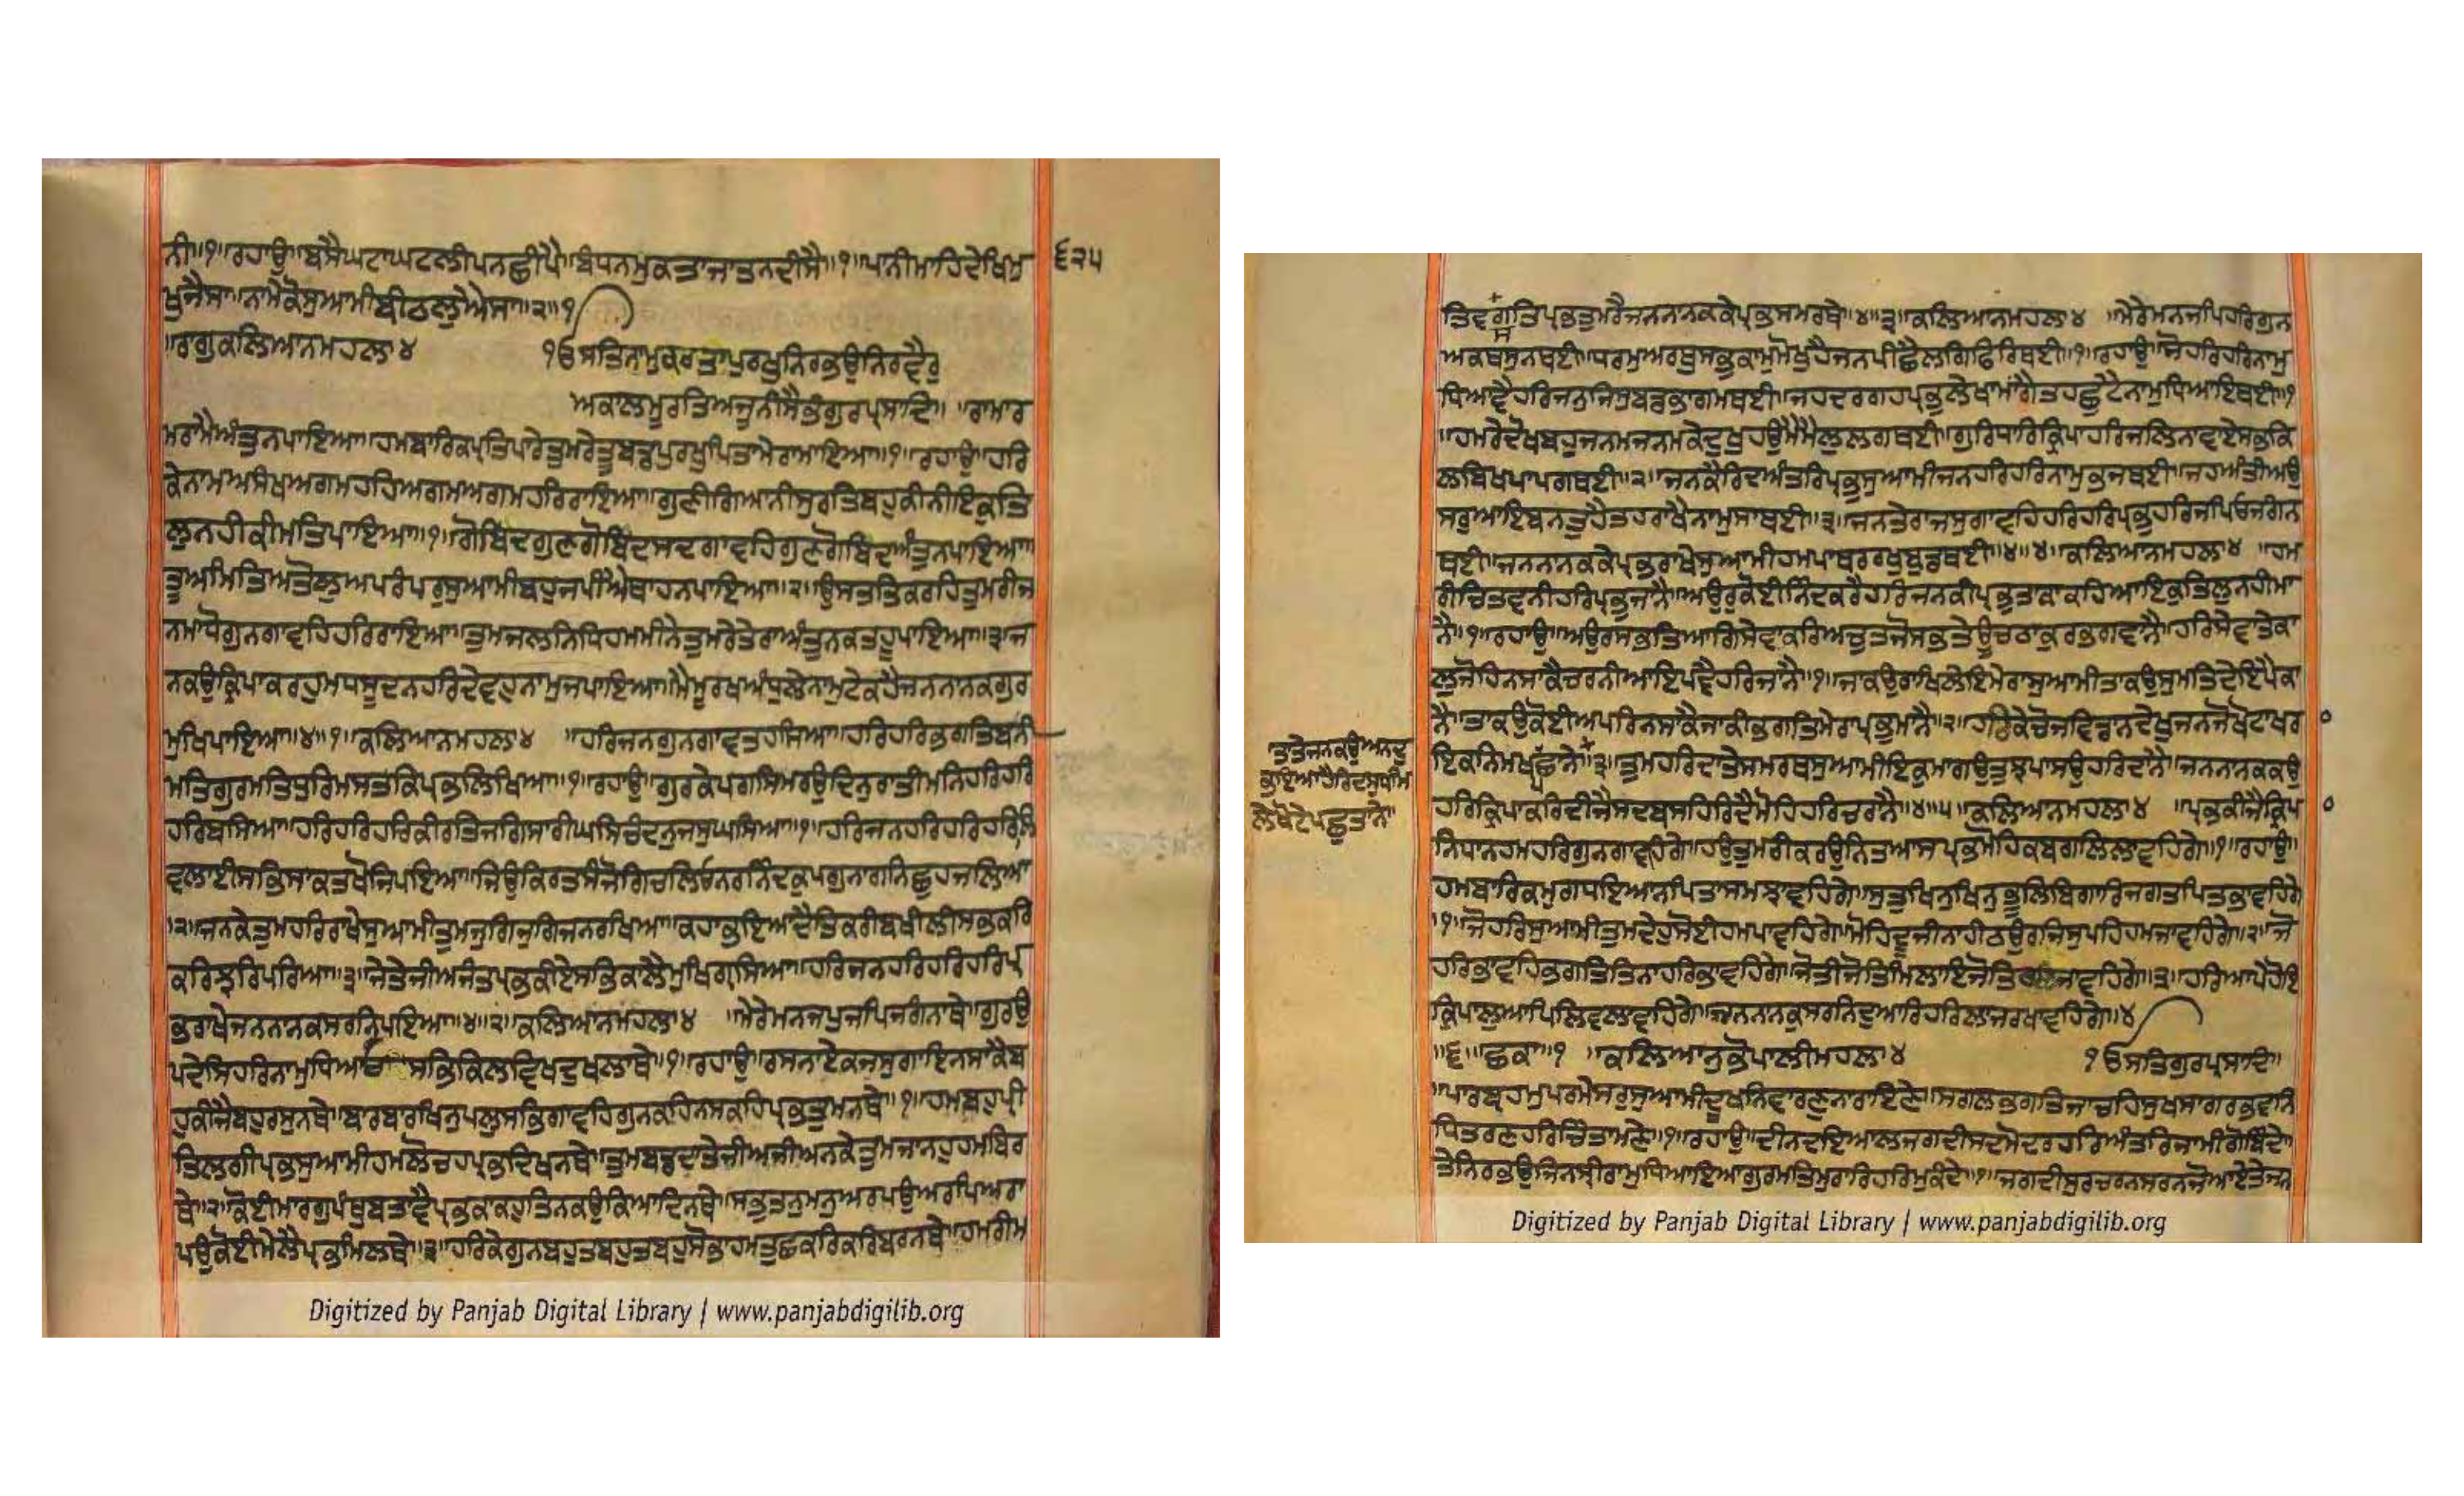 ਨੀ॥੧॥ਰਹਾਉ॥ਬਸੈਘਟਾਘਟਲੀਪਨਛੀਪੈ॥ਬੰਧਨਮੁਕਤਾਜਾਤੁਨਦੀਸੈ॥੧॥ਪਾਨੀਮਾਹਿਦੇਖਿਮੁ
੬੨੫
ਖੁਜੈਸਾ॥ਨਾਮੇਕੋਸੁਆਮੀਬੀਠਲੁਐਸਾ॥੨॥੧
॥ਰਾਗੁਕਲਿਆਨਮਹਲਾ੪ ੴਸਤਿਨਾਮੁਕਰਤਾਪੁਰਖੁਨਿਰਭਉਨਿਰਵੈਰੁ
ਅਕਾਲਮੂਰਤਿਅਜੂਨੀਸੈਭੰਗੁਰਪ੍ਰਸਾਦਿ॥ ॥ਰਾਮਾਰ
ਮਰਾਮੈਅੰਤੁਨਪਾਇਆ॥ਹਮਬਾਰਿਕਪ੍ਰਤਿਪਾਰੇਤੁਮਰੇਤੂਬਡਪੁਰਖੁਪਿਤਾਮੇਰਾਮਾਇਆ॥੧॥ਰਹਾਉ॥ਹਰਿ
ਕੇਨਾਮਅਸੰਖਅਗਮਹਹਿਅਗਮਅਗਮਹਰਿਰਾਇਆ॥ਗੁਣੀਗਿਆਨੀਸੁਰਤਿਬਹੁਕੀਨੀਇਕੁਤਿ
ਲੁਨਹੀਕੀਮਤਿਪਾਇਆ॥੧॥ਗੋਬਿਦਗੁਣਗੋਬਿਦਸਦਗਾਵਹਿਗੁਣਗੋਬਿਦਅੰਤੁਨਪਾਇਆ॥
ਤੂਅਮਿਤਿਅਤੋਲੁਅਪਰੰਪਰਸੁਆਮੀਬਹੁਜਪੀਐਥਾਹਨਪਾਇਆ॥੨॥ਉਸਤਤਿਕਰਹਿਤੁਮਰੀਜ
ਨਮਾਧੋਗੁਨਗਾਵਹਿਹਰਿਰਾਇਆ॥ਤੁਮਜਲਨਿਧਿਹਮਮੀਨੇਤੁਮਰੇਤੇਰਾਅੰਤੁਨਕਤਹੂਪਾਇਆ॥੩॥ਜ
ਨਕਉਕ੍ਰਿਪਾਕਰਹੁਮਧਸੂਦਨਹਰਿਦੇਵਹੁਨਾਮੁਜਪਾਇਆ॥ਮੈਮੂਰਖਅੰਧੁਲੇਨਾਮੁਟੇਕਹੈਜਨਨਾਨਕਗੁਰ
ਮੁਖਿਪਾਇਆ॥੪॥੧॥ਕਲਿਆਨਮਹਲਾ੪ ॥ਹਰਿਜਨਗੁਨਗਾਵਤਹਸਿਆ॥ਹਰਿਹਰਿਭਗਤਿਬਨੀ
ਮਤਿਗੁਰਮਤਿਧੁਰਿਮਸਤਕਿਪ੍ਰਭਲਿਖਿਆ॥੧॥ਰਹਾਉ॥ਗੁਰਕੇਪਗਸਿਮਰਉਦਿਨੁਰਾਤੀਮਨਿਹਰਿਹਰਿ
ਹਰਿਬਸਿਆ॥ਹਰਿਹਰਿਹਰਿਕੀਰਤਿਜਗਿਸਾਰੀਘਸਿਚੰਦਨੁਜਸੁਘਸਿਆ॥੧॥ਹਰਿਜਨਹਰਿਹਰਿਹਰਿਲਿ
ਵਲਾਈਸਭਿਸਾਕਤਖੋਜਿਪਇਆ॥ਜਿਉਕਿਰਤਸੰਜੋਗਿਚਲਿਓਨਰਨਿੰਦਕੁਪਗੁਨਾਗਨਿਛੁਹਜਲਿਆ
॥੨॥ਜਨਕੇਤੁਮਹਰਿਰਾਖੇਸੁਆਮੀਤੁਮਜੁਗਿਜੁਗਿਜਨਰਖਿਆ॥ਕਹਾਭਇਆਦੈਤਿਕਰੀਬਖੀਲੀਸਭਕਰਿ
ਕਰਿਝਰਿਪਰਿਆ॥੩॥ਜੇਤੇਜੀਅਜੰਤਪ੍ਰਭਕੀਏਸਭਿਕਾਲੈਮੁਖਿਗ੍ਰਸਿਆ॥ਹਰਿਜਨਹਰਿਹਰਿਹਰਿਪ੍ਰ
ਭਰਾਖੇਜਨਨਾਨਕਸਰਨਿਪਇਆ॥੪॥੨॥ਕਲਿਆਨਮਹਲਾ੪ ॥ਮੇਰੇਮਨਜਪੁਜਪਿਜਗੰਨਾਥੇ॥ਗੁਰਉ
ਪਦੇਸਿਹਰਿਨਾਮੁਧਿਆਇਓ ਸਭਿਕਿਲਵਿਖਦੁਖਲਾਥੇ॥੧॥ਰਹਾਉ॥ਰਸਨਾਏਕਜਸੁਗਾਇਨਸਾਕੈਬ
ਹੁਕੀਜੈਬਹੁਰਸੁਨਥੇ॥ਬਾਰਬਾਰਖਿਨੁਪਲੁਸਭਿਗਾਵਹਿਗੁਨਕਹਿਨਸਕਹਿਪ੍ਰਭਤੁਮਨਥੇ॥੧॥ਹਮਬਹੁਪ੍ਰੀ
ਤਿਲਗੀਪ੍ਰਭਸੁਆਮੀਹਮਲੋਚਹਪ੍ਰਭਦਿਖਨਥੇ॥ਤੁਮਬਡਦਾਤੇਜੀਅਜੀਅਨਕੇਤੁਮਜਾਨਹੁਹਮਬਿਰ
ਥੇ॥੨॥ਕੋਈਮਾਰਗੁਪੰਥੁਬਤਾਵੈਪ੍ਰਭਕਾਕਹੁਤਿਨਕਉਕਿਆਦਿਨਥੇ॥ਸਭੁਤਨੁਮਨੁਅਰਪਉਅਰਪਿਅਰਾ
ਪਉਕੋਈਮੇਲੈਪ੍ਰਭਮਿਲਥੇ॥੩॥ਹਰਿਕੇਗੁਨਬਹੁਤਬਹੁਤਬਹੁਸੋਭਾਹਮਤੁਛਕਰਿਕਰਿਬਰਨਥੇ॥ਹਮਰੀਮ
ਤਿਵਸਗਤਿਪ੍ਰਭਤੁਮਰੈਜਨਨਾਨਕਕੇਪ੍ਰਭਸਮਰਥੇ॥੪॥੩॥ਕਲਿਆਨਮਹਲਾ੪ ॥ਮੇਰੇਮਨਜਪਿਹਰਿਗੁਨ
ਅਕਥਸੁਨਥਈ॥ਧਰਮੁਅਰਥੁਸਭੁਕਾਮੁਮੋਖੁਹੈਜਨਪੀਛੈਲਗਿਫਿਰਿਥਈ॥੧॥ਰਹਾਉ॥ਸੋਹਰਿਹਰਿਨਾਮੁ
ਧਿਆਵੈਹਰਿਜਨੁਜਿਸੁਬਡਭਾਗਮਥਈ॥ਜਹਦਰਗਹਪ੍ਰਭੁਲੇਖਾਮਾਂਗੈਤਹਛੁਟੈਨਾਮੁਧਿਆਇਥਈ॥੧
॥ਹਮਰੇਦੋਖਬਹੁਜਨਮਜਨਮਕੇਦੁਖੁਹਉਮੈਮੈਲੁਲਗਥਈ॥ਗੁਰਿਧਾਰਿਕ੍ਰਿਪਾਹਰਿਜਲਿਨਾਵਾਏਸਭਕਿ
ਲਬਿਖਪਾਪਗਥਈ॥੨॥ਜਨਕੈਰਿਦਅੰਤਰਿਪ੍ਰਭੁਸੁਆਮੀਜਨਹਰਿਹਰਿਨਾਮੁਭਜਥਈ॥ਜਹਅੰਤੀਅਉ
ਸਰੁਆਇਬਨਤੁਹੈਤਹਰਾਖੈਨਾਮੁਸਾਥਈ॥੩॥ਜਨਤੇਰਾਜਸੁਗਾਵਹਿਹਰਿਹਰਿਪ੍ਰਭਹਰਿਜਪਿਓਜਗੰਨ
ਥਈ॥ਜਨਨਾਨਕਕੇਪ੍ਰਭਰਾਖੇਸੁਆਮੀਹਮਪਾਥਰਰਖੁਬੁਡਥਈ॥੪॥੪॥ਕਲਿਆਨਮਹਲਾ੪ ॥ਹਮ
ਰੀਚਿਤਵਨੀਹਰਿਪ੍ਰਭੁਜਾਨੈ॥ਅਉਰੁਕੋਈਨਿੰਦਕਰੈਹਰਿਜਨਕੀਪ੍ਰਭੁਤਾਕਾਕਹਿਆਇਕੁਤਿਲੁਨਹੀਮਾ
ਨੈ॥੧॥ਰਹਾਉ॥ਅਉਰਸਭਤਿਆਗਿਸੇਵਾਕਰਿਅਚੁਤਜੋਸਭਤੇਊਚਠਾਕੁਰਭਗਵਾਨੈ॥ਹਰਿਸੇਵਾਤੇਕਾ
ਲੁਜੋਹਿਨਸਾਕੈਚਰਨੀਆਇਪਵੈਹਰਿਜਾਨੈ॥੧॥ਜਾਕਉਰਾਖਿਲੇਇਮੇਰਾਸੁਆਮੀਤਾਕਉਸੁਮਤਿਦੇਇਪੈਕਾ
ਨੈ॥ਤਾਕਉਕੋਈਅਪਰਿਨਸਾਕੈਜਾਕੀਭਗਤਿਮੇਰਾਪ੍ਰਭੁਮਾਨੈ॥੨॥ਹਰਿਕੇਚੋਜਵਿਡਾਨਦੇਖੁਜਨਜੋਖੋਟਾਖਰ
ਇਕਨਿਮਖਪਛਾਨੈ॥੩॥ਤੁਮਹਰਿਦਾਤੇਸਮਰਥਸੁਆਮੀਇਕੁਮਾਗਉਤੁਝਪਾਸਉਹਰਿਦਾਨੈ॥ਜਨਨਾਨਕਕਉ
ਤਾਤੇਜਨਕਉਅਨਦੁ
ਭਇਆਹੈਰਿਦਸੁਧਮਿ
ਲੇਖੋਟੇਪਛੁਤਾਨੇ
ਹਰਿਕ੍ਰਿਪਾਕਰਿਦੀਜੈਸਦਬਸਹਿਰਿਦੈਮੋਹਿਹਰਿਚਰਾਨੈ॥੪॥੫॥ਕਲਿਆਨਮਹਲਾ੪ ॥ਪ੍ਰਭਕੀਜੈਕ੍ਰਿਪਾ
ਨਿਧਾਨਹਮਹਰਿਗੁਨਗਾਵਹਿਗੇ॥ਹਉਤੁਮਰੀਕਰਉਨਿਤਆਸਪ੍ਰਭਮੋਹਿਕਬਗਲਿਲਾਵਹਿਗੇ॥੧॥ਰਹਾਉ॥
ਹਮਬਾਰਿਕਮੁਗਧਇਆਨਪਿਤਾਸਮਝਾਵਹਿਗੇ॥ਸੁਤੁਖਿਨੁਖਿਨੁਭੂਲਿਬਿਗਾਰਿਜਗਤਪਿਤਭਾਵਹਿਗੇ
॥੧॥ਜੋਹਰਿਸੁਆਮੀਤੁਮਦੇਹੁਸੋਈਹਮਪਾਵਹਿਗੇ॥ਮੋਹਿਦੂਜੀਨਾਹੀਠਉਰਜਿਸੁਪਹਿਹਮਜਾਵਹਿਗੇ॥੨॥ਜੋ
ਹਰਿਭਾਵਹਿਭਗਤਿਤਿਨਾਹਰਿਭਾਵਹਿਗੇ॥ਜੋਤੀਜੋਤਿਮਿਲਾਇਜੋਤਿਰਲਿਜਾਵਹਿਗੇ॥੩॥ਹਰਿਆਪੇਹੋਇ
ਕ੍ਰਿਪਾਲੁਆਪਿਲਿਵਲਾਵਹਿਗੇ॥ਜਨਨਾਨਕੁਸਰਨਿਦੁਆਰਿਹਰਿਲਾਜਰਖਾਵਹਿਗੇ॥੪
॥੬॥ਛਕਾ॥੧ ॥ਕਲਿਆਨੁਭੋਪਾਲੀਮਹਲਾ੪ ੴਸਤਿਗੁਰਪ੍ਰਸਾਦਿ॥
॥ਪਾਰਬ੍ਰਹਮੁਪਰਮੇਸਰੁਸੁਆਮੀਦੂਖਨਿਵਾਰਣੁਨਾਰਾਇਣੇ॥ਸਗਲਭਗਤਿਜਾਚਹਿਸੁਖਸਾਗਰਭਵਨਿ
ਧਿਤਰਣਹਰਿਚਿੰਤਾਮਣੇ॥੧॥ਰਹਾਉ॥ਦੀਨਦਇਆਲਜਗਦੀਸਦਮੋਦਰਹਰਿਅੰਤਰਿਜਾਮੀਗੋਬਿੰਦੇ॥
ਤੇਨਿਰਭਉਜਿਨਸ੍ਰੀਰਾਮੁਧਿਆਇਆਗੁਰਮਤਿਮੁਰਾਰਿਹਰਿਮੁਕੰਦੇ॥੧॥ਜਗਦੀਸੁਰਚਰਨਸਰਨਜੋਆਏਤੇਜਨ
Digitized by Panjab Digital Library | www.panjabdigilib.org
Digitized by Panjab Digital Library | www.panjabdigilib.org